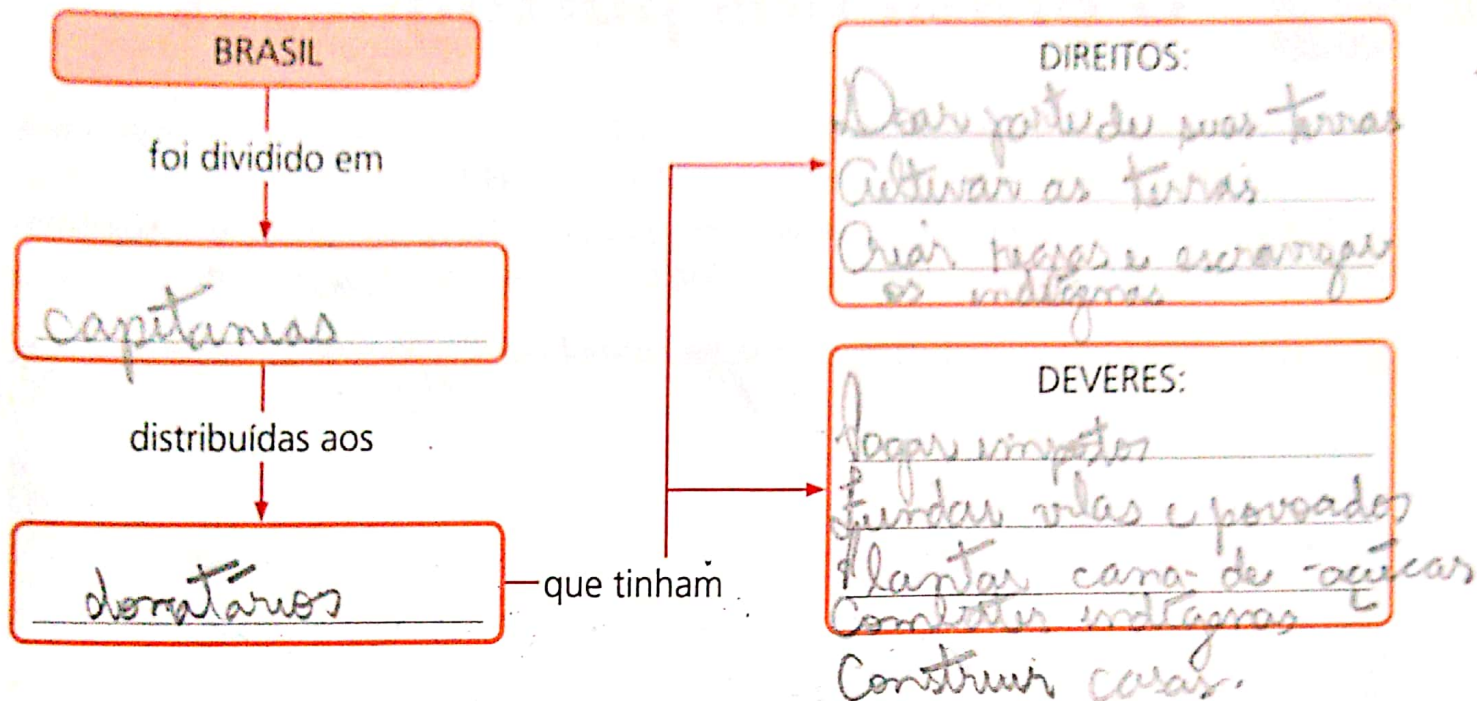 BRASIL
foi dividido em
capitanias
distribuídas aos
donatários
que tinham
DIREITOS:
Doar parte de suas terras
Cultivar as terras
Criar regras e escravizar
os indígenas
DEVERES:
Pagar impostos
Fundar vilas e povoados
Plantar cana-de-açúcar
Combater indígenas
Construir casas.